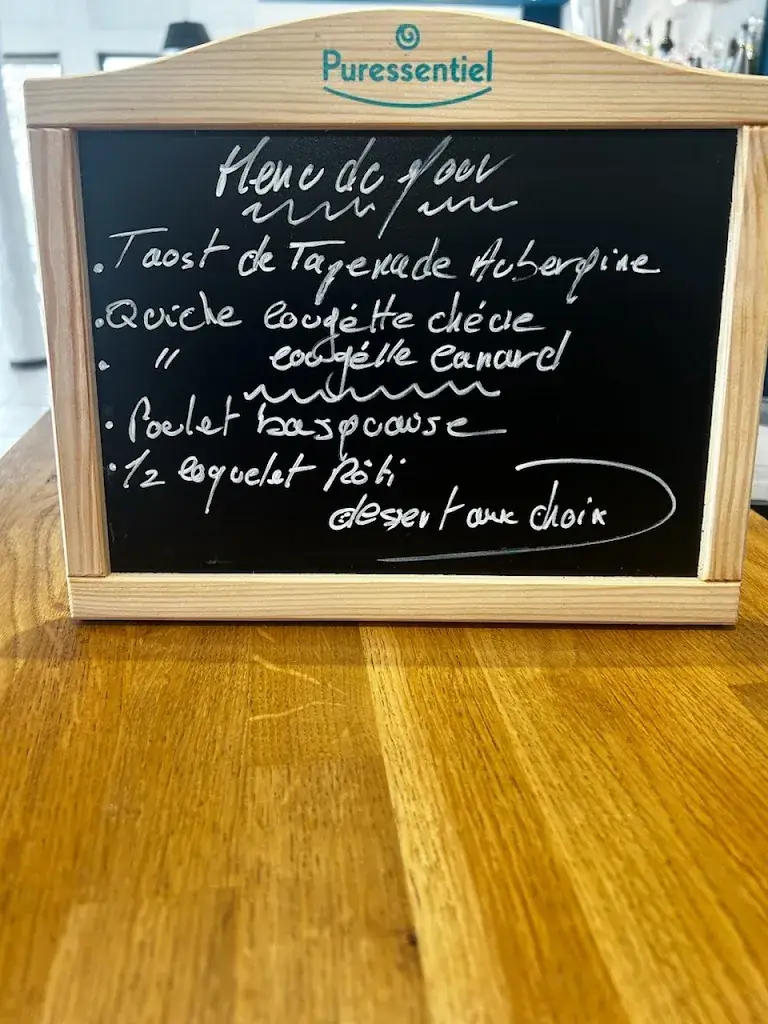 Puressentiel
Menu du jour
. Taost de Tapenade Aubergine
. Quiche courgétte chévre
. " courgétte canard
. Poulet basquaise
. 1/2 coquelet Rôti
desert aux choix